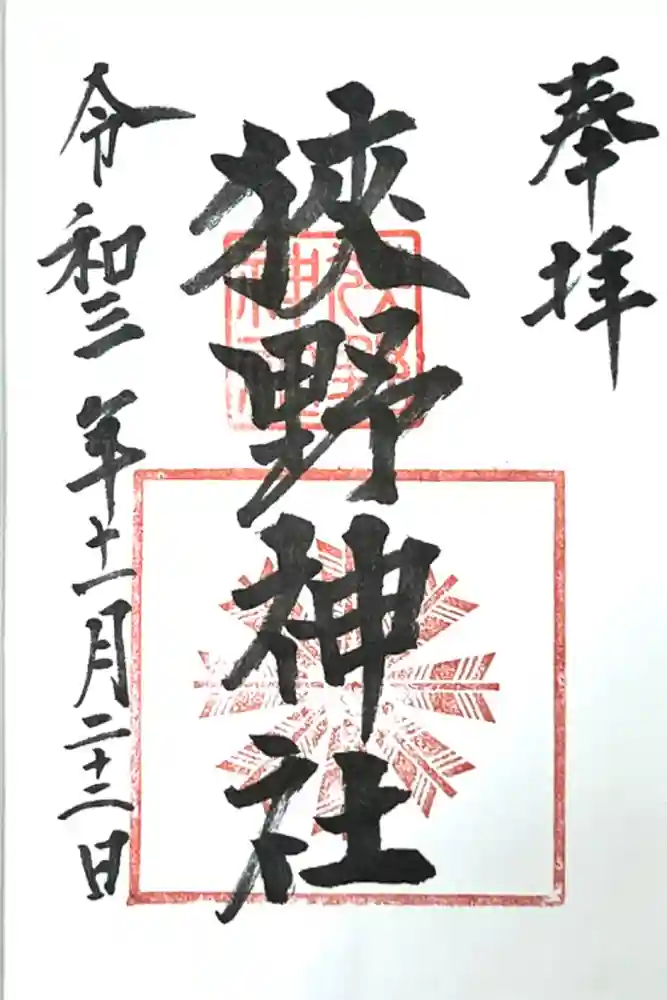 奉拝
狹野神社
令和三年十一月二十三日